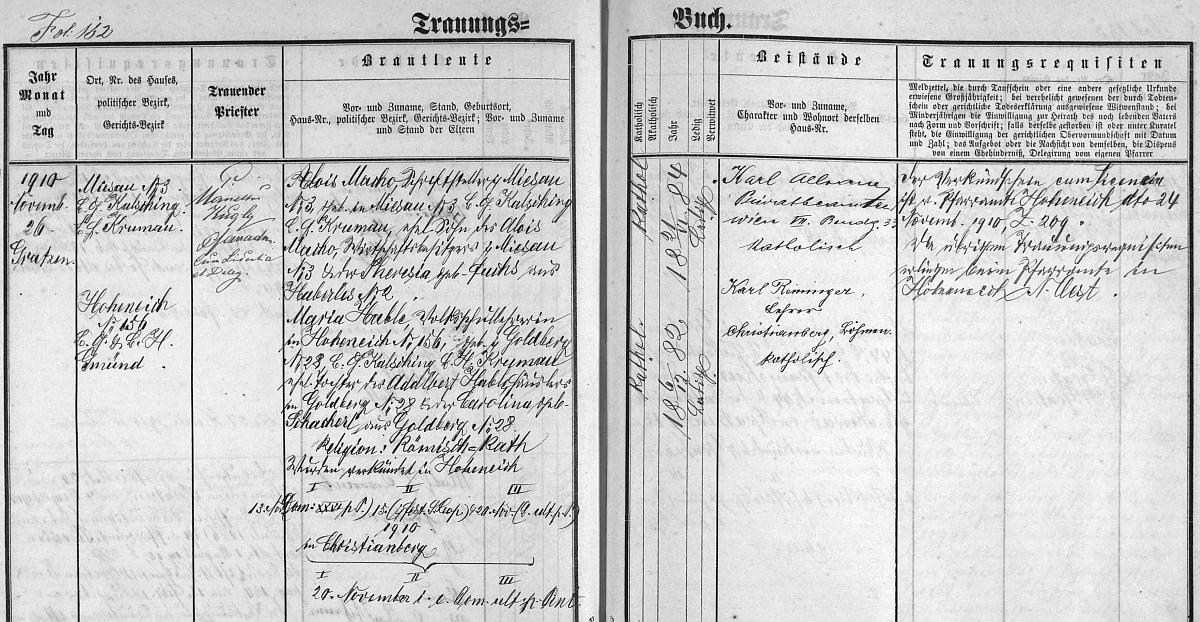 Fol. 152
Trauungs=
Buch.
Jahr
Monat
und
Tag
Ort, Nr. des Hauses,
politischer Bezirk,
Gerichts-Bezirk
Trauender
Priester
Brautleute
Vor- und Zuname, Stand, Geburtsort,
Haus-Nr., politischer Bezirk, Gerichts-Bezirk; Vor- und Zuname
und Stand der Eltern
Katholisch
Akatholisch
Jahr
Ledig
Verwitwet
Beistände
Vor- und Zuname,
Charakter und Wohnort derselben
Haus-Nr.
Trauungsrequisiten
Meldzettel, die durch Taufschein oder eine andere gesetzliche Urkunde
erwiesene Großjährigkeit; bei verehelicht gewesenen der durch Todten-
schein oder gerichtliche Todeserklärung ausgewiesene Witwenstand; bei
Minderjährigen die Einwilligung zur Heirath des noch lebenden Vaters
nach Form und Vorschrift; falls derselbe gestorben ist oder unter Kuratel
steht, die Einwilligung der gerichtlichen Obervormundschaft mit Datum
und Zahl; das Aufgebot oder die Nachsicht von demselben, die Dispens
von einem Ehehinderniß, Delegirung vom eigenen Pfarrer
1910
Novemb.
26.
Gratzen
Miesau № 3
B. G. Kalsching
B. H. Krumau.
Hoheneich
№ 156
B. G. & B. H.
Gmünd.
cum Licentia
et Deleg.
Alois Macho, Schriftsteller, Miesau
№ 3, geb. in Miesau № 3, B. G. Kalsching
B. H. Krumau, ehel. Sohn des Alois
Macho, Wirtschaftsbesitzers, Miesau
№ 3 & der Theresia geb. Fuchs aus
Haberles № 2.
Maria Hable Volksschullehrerin
in Hoheneich № 156, geb. Goldberg
№ 28, B. G. Kalsching B. H. Krumau
ehel. Tochter des Adalbert Hable, Häuslers
in Goldberg № 28 & der Carolina geb.
Schacherl aus Goldberg № 28.
Religion: Römisch=Kath
Wurden verkündet in Hoheneich
I II III
13. Nov. 15. 20. Nov.
1910
in Christianberg
I II III
20. November i. e. Dom. ult. p. Pent.
Kathol.
84
Ledig
Kathol.
18 82
Ledig
Karl
Privatbeamter
Wien VI. 33
Katholisch
Karl Reininger,
Lehrer
Christianberg, Böhmen
katholisch.
Der Verkündschein cum licentia
Pfarramts Hoheneich dto 24
Novemb. 910, Z. 209.
Die übrigen Trauungsrequisiten
erliegen beim Pfarramte in
Hoheneich, N. Oest.